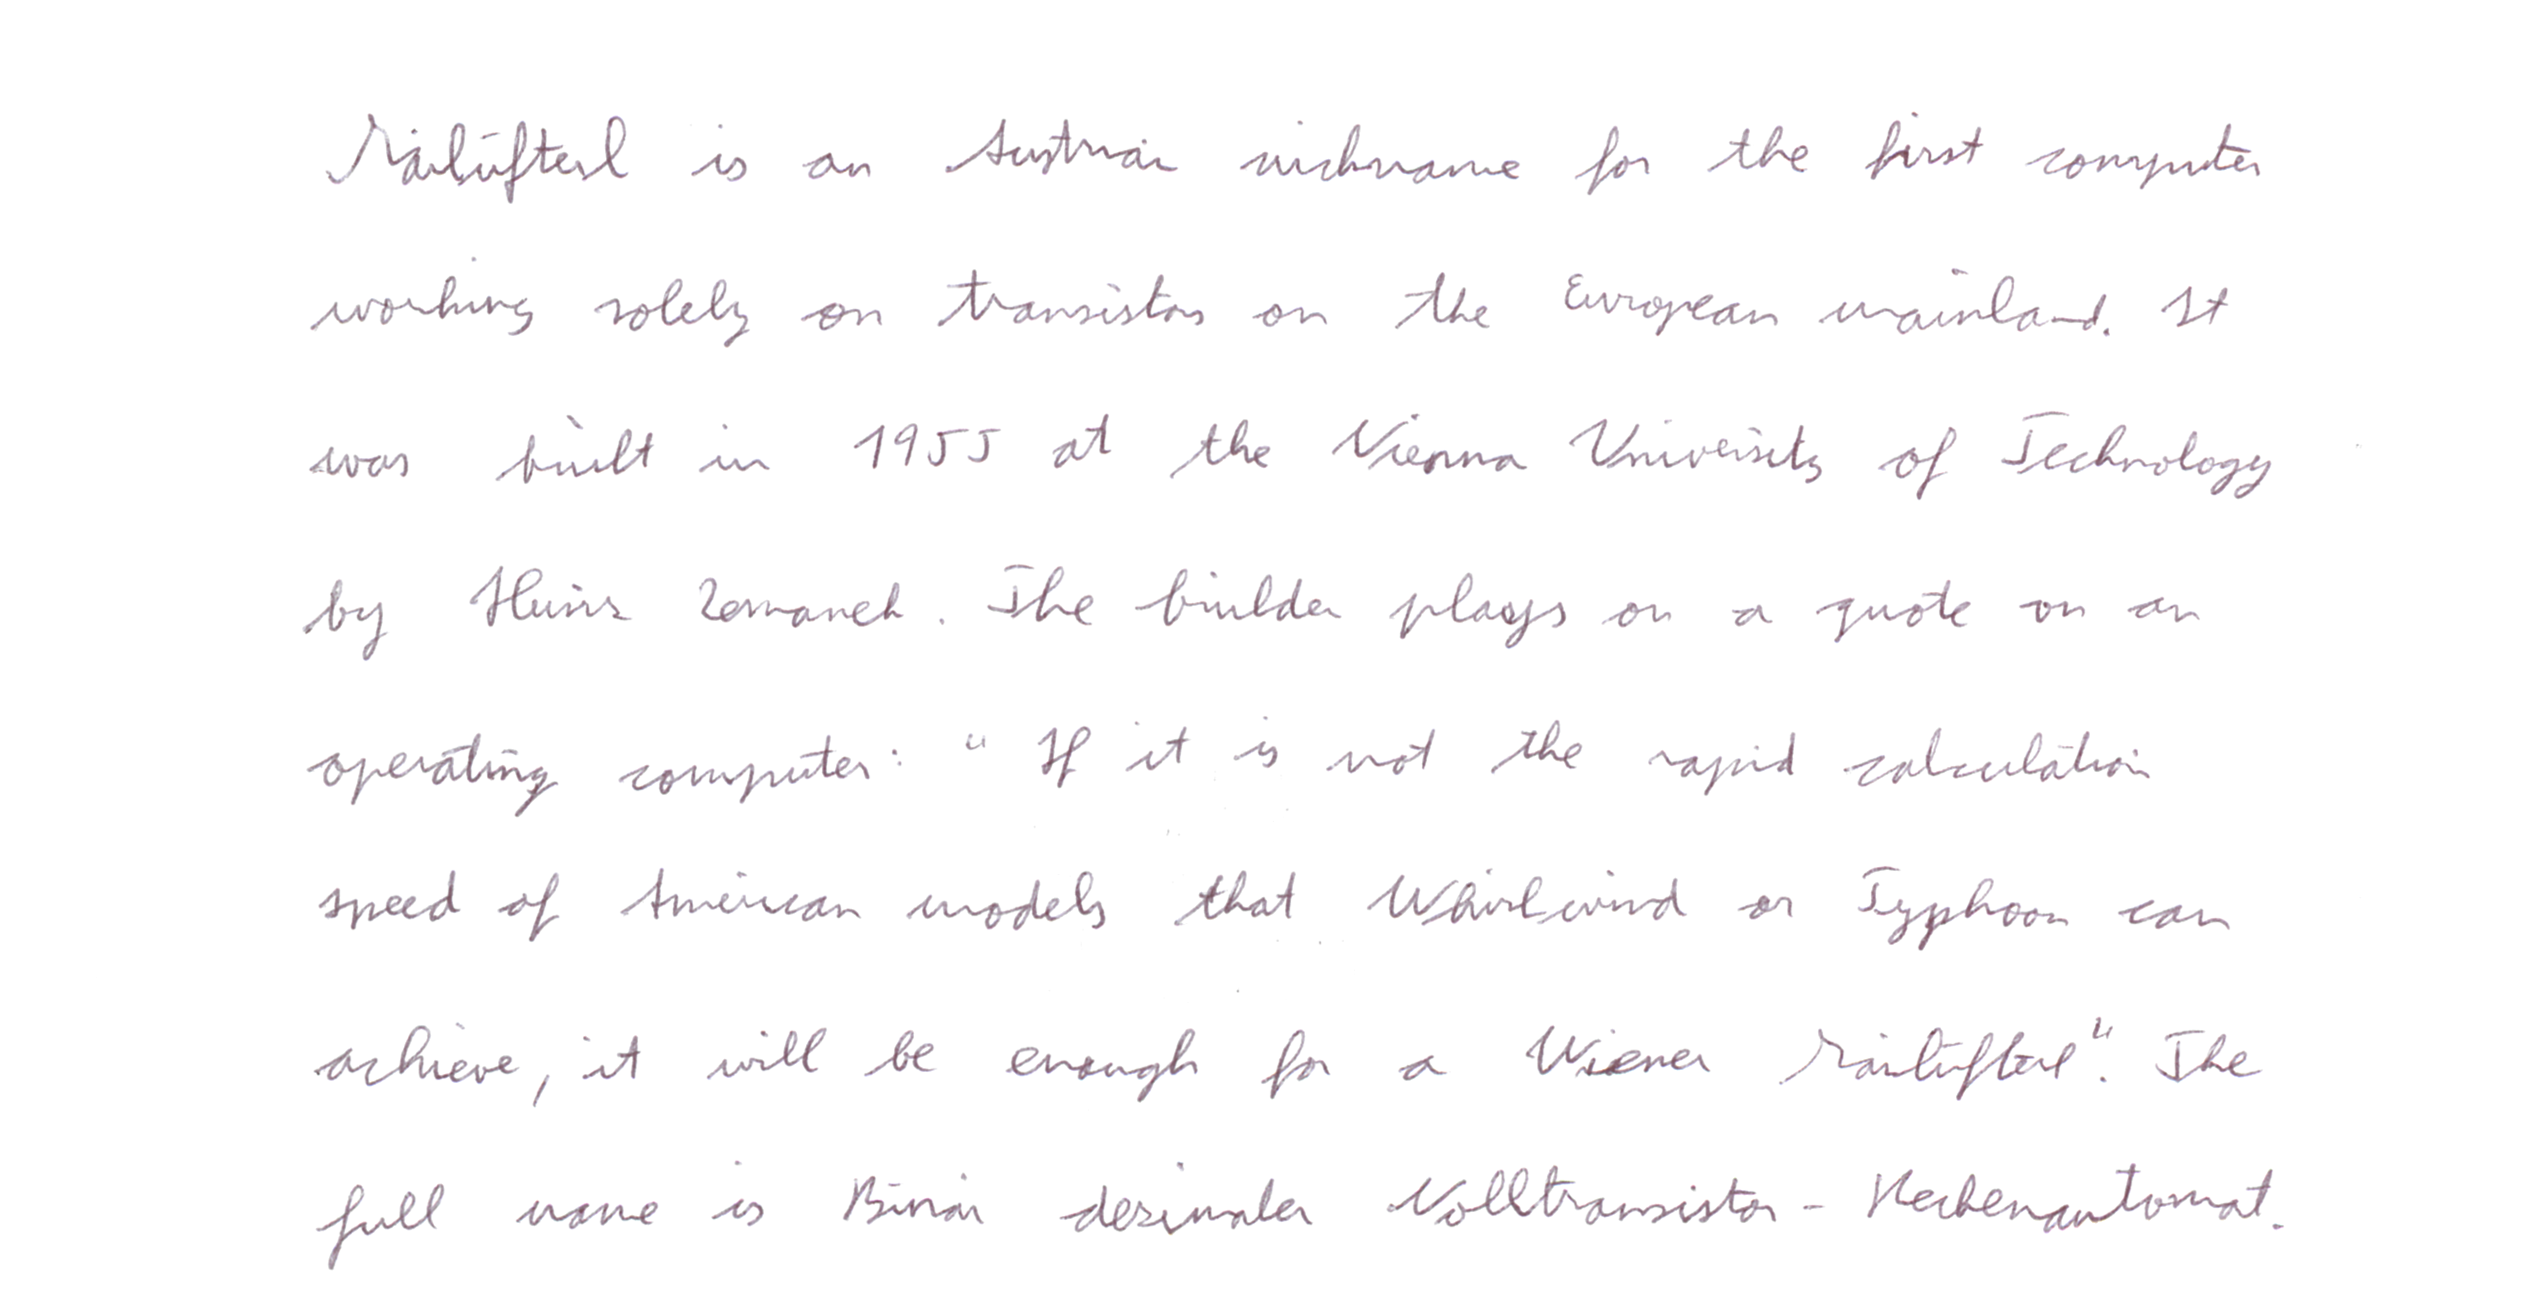 Mailüfterl is an Austrian nickname for the first computer
working solely on transistors on the European mainland. It
was built in 1955 at the Vienna University of Technology
by Heinz Zemanek. The builder plays on a quote on an
operating computer: "If it is not the rapid calculation
speed of American models that Whirlwind or Typhoon can
achieve, it will be enough for a Wiener Mailüfterl". The
full name is Binär dezimaler Volltransistor-Rechenautomat.